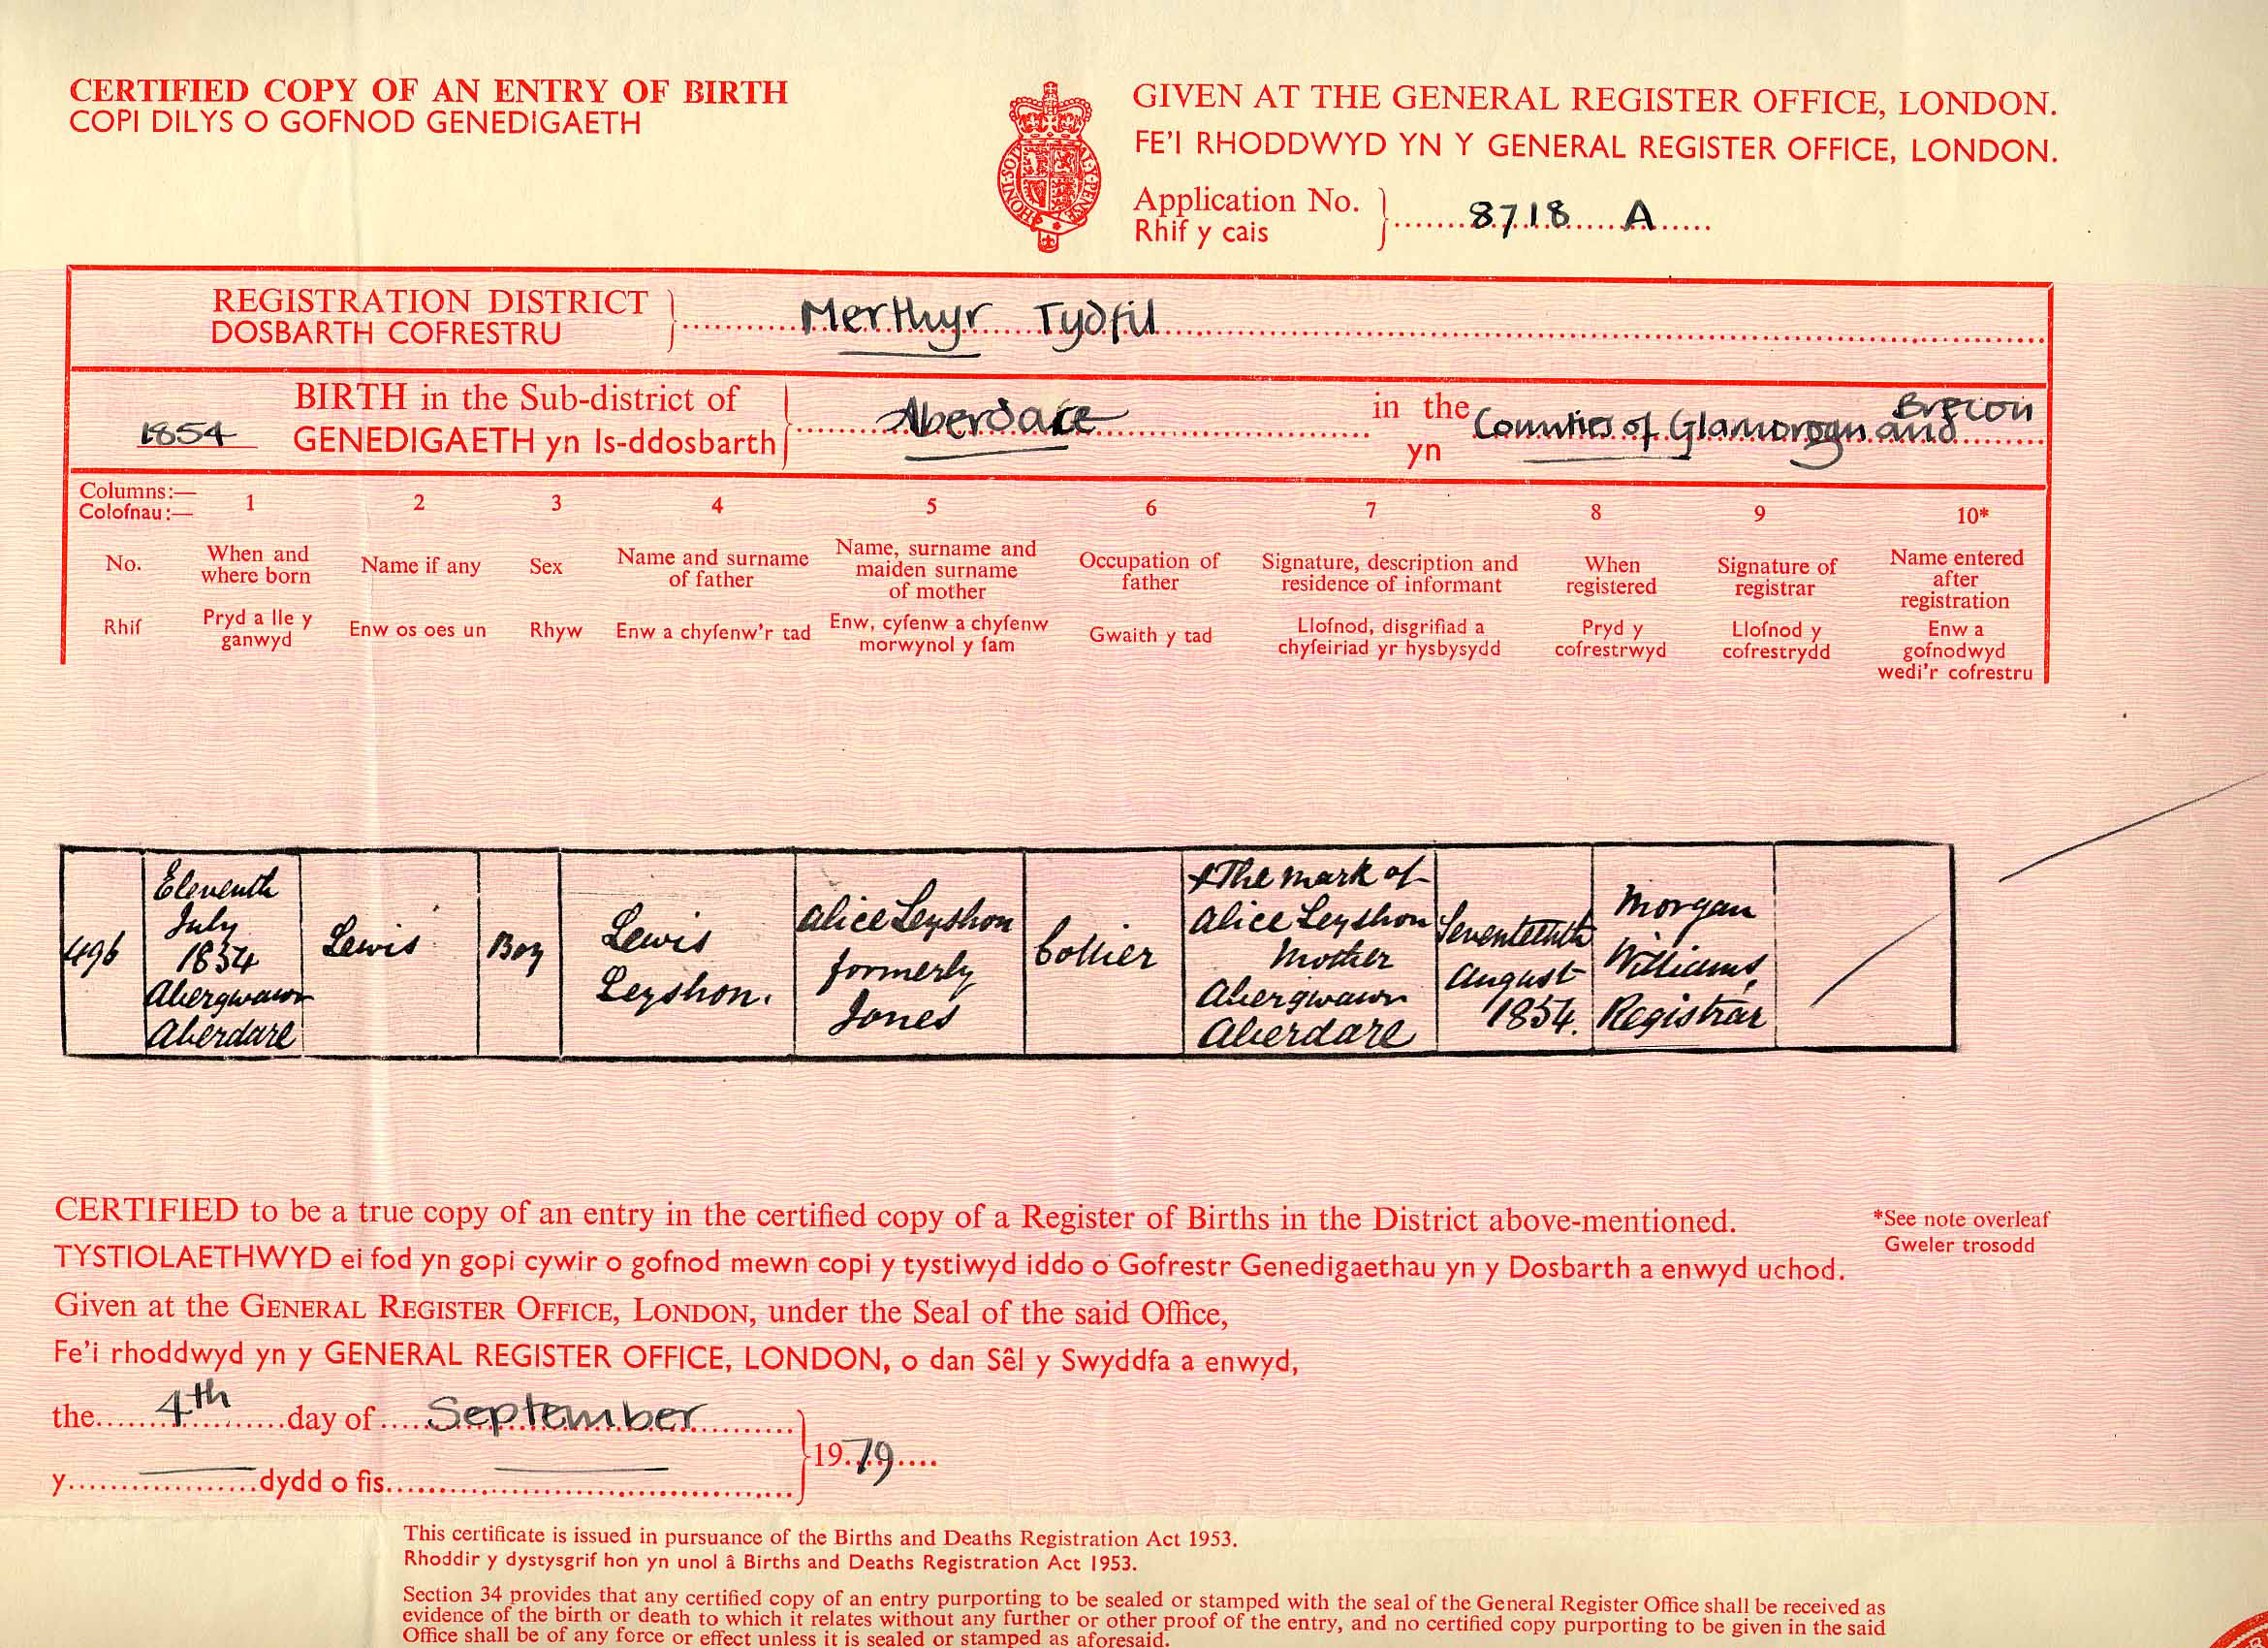 CERTIFIED COPY OF AN ENTRY OF BIRTH
COPI DILYS O GOFNOD GENEDIGAETH
GIVEN AT THE GENERAL REGISTER OFFICE, LONDON.
FE'I RHODDWYD YN Y GENERAL REGISTER OFFICE, LONDON.
Application No.
Rhif y cais
8718 A
HONI·SOIT
AL·Y·PENSE
REGISTRATION DISTRICT
DOSBARTH COFRESTRU
Merthyr Tydfil
1854
BIRTH in the Sub-district of
GENEDIGAETH yn Is-ddosbarth
Aberdare
in the
yn
Counties of Glamorogn and Brecon
Columns:—
Colofnau:—
1 2 3 4 5 6 7 8 9 10*
No.
Rhif
When and
where born
Pryd a lle y
ganwyd
Name if any
Enw os oes un
Sex
Rhyw
Name and surname
of father
Enw a chyfenw'r tad
Name, surname and
maiden surname
of mother
Enw, cyfenw a chyfenw
morwynol y fam
Occupation of
father
Gwaith y tad
Signature, description and
residence of informant
Llofnod, disgrifiad a
chyfeiriad yr hysbysydd
When
registered
Pryd y
cofrestrwyd
Signature of
registrar
Llofnod y
cofrestrydd
Name entered
after
registration
Enw a
gofnodwyd
wedi'r cofrestru
496
Eleventh
July
1854
Abergwawr
Aberdare
Lewis
Boy
Lewis
Leyshon.
Alice Leyshon
formerly
Jones
Collier
X The mark of
Alice Leyshon
Mother
Abergwawr
Aberdare
Seventeenth
August
1854.
Morgan
Williams,
Registrar
CERTIFIED to be a true copy of an entry in the certified copy of a Register of Births in the District above-mentioned.
TYSTIOLAETHWYD ei fod yn gopi cywir o gofnod mewn copi y tystiwyd iddo o Gofrestr Genedigaethau yn y Dosbarth a enwyd uchod.
*See note overleaf
Gweler trosodd
Given at the GENERAL REGISTER OFFICE, LONDON, under the Seal of the said Office,
Fe'i rhoddwyd yn y GENERAL REGISTER OFFICE, LONDON, o dan Sêl y Swyddfa a enwyd,
the 4th day of September
1979
y dydd o fis
This certificate is issued in pursuance of the Births and Deaths Registration Act 1953.
Rhoddir y dystysgrif hon yn unol â Births and Deaths Registration Act 1953.
Section 34 provides that any certified copy of an entry purporting to be sealed or stamped with the seal of the General Register Office shall be received as
evidence of the birth or death to which it relates without any further or other proof of the entry, and no certified copy purporting to be given in the said
Office shall be of any force or effect unless it is sealed or stamped as aforesaid.